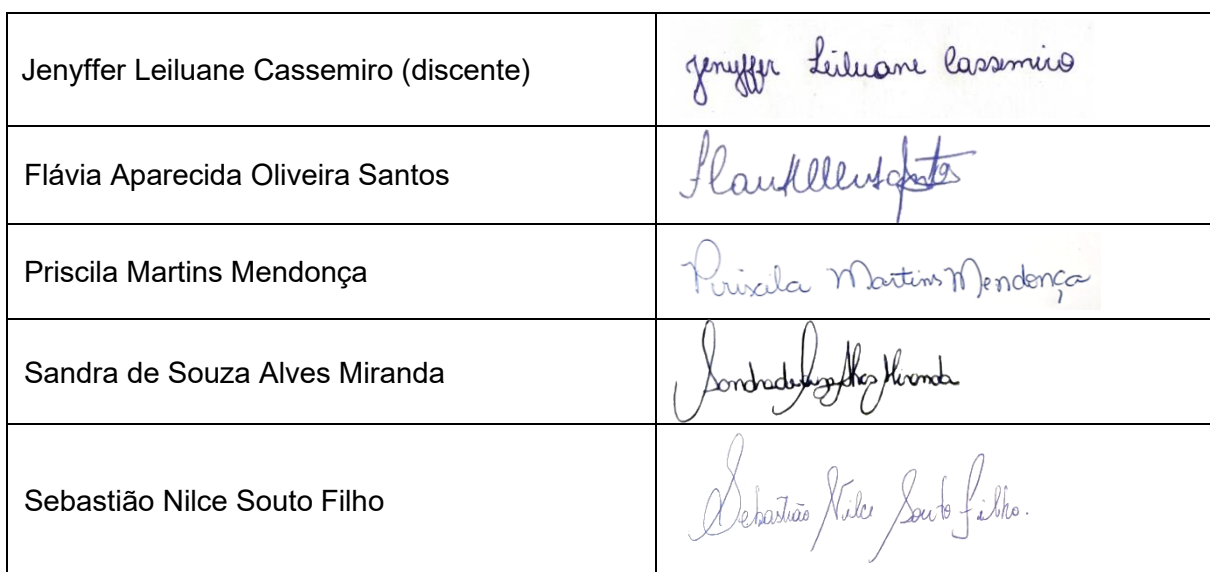 Jenyffer Leiluane Cassemiro (discente)
Jenyffer Leiluane Cassemiro
Flávia Aparecida Oliveira Santos
Priscila Martins Mendonça
Priscila Martins Mendonça
Sandra de Souza Alves Miranda
Sandra de Souza Alves Miranda
Sebastião Nilce Souto Filho
Sebastião Nilce Souto Filho.